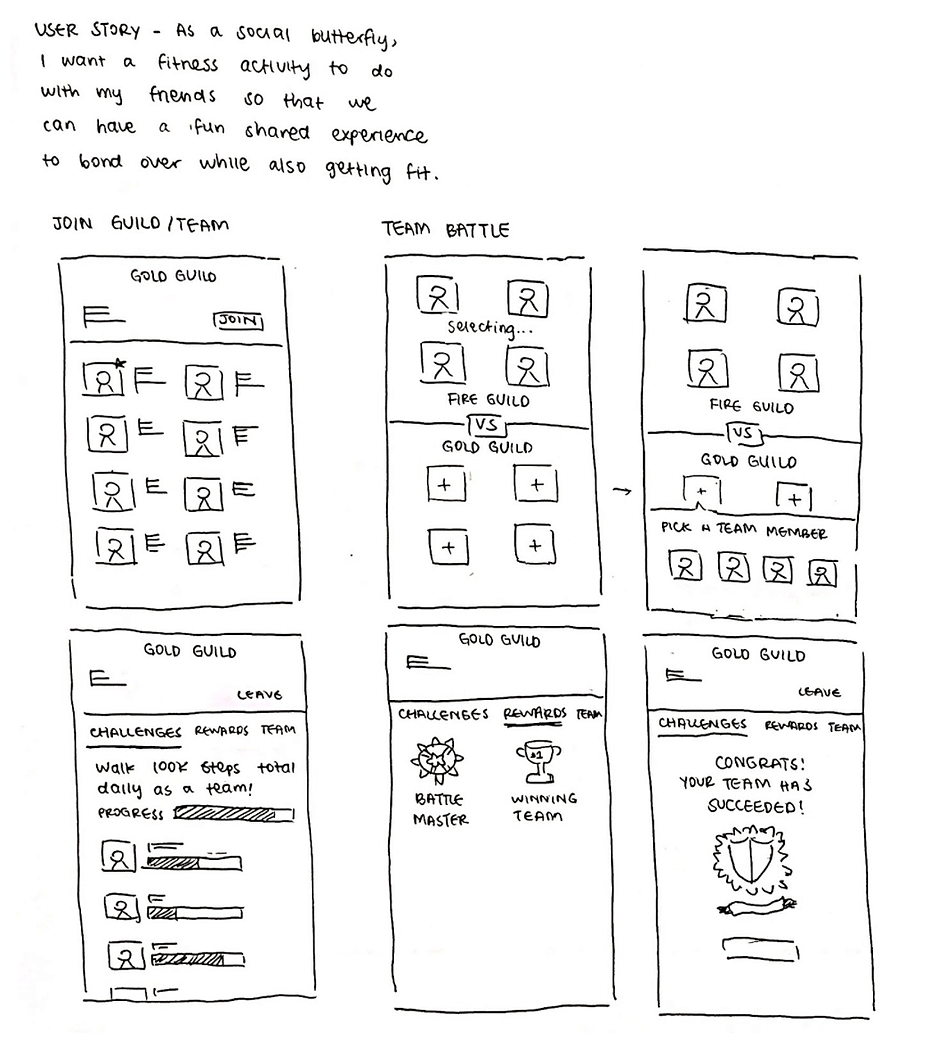 USER STORY - As a social butterfly,
I want a fitness activity to do
with my friends so that we
can have a fun shared experience
to bond over while also getting fit.
JOIN GUILD/TEAM
GOLD GUILD
JOIN
TEAM BATTLE
Selecting...
FIRE GUILD
VS
GOLD GUILD
+ +
+ +
→
FIRE GUILD
VS
GOLD GUILD
+ +
PICK A TEAM MEMBER
GOLD GUILD
LEAVE
CHALLENGES REWARDS TEAM
Walk 100K steps total
daily as a team!
PROGRESS
GOLD GUILD
CHALLENGES REWARDS TEAM
#1
BATTLE
MASTER
WINNING
TEAM
GOLD GUILD
LEAVE
CHALLENGES REWARDS TEAM
CONGRATS!
YOUR TEAM HAS
SUCCEEDED!